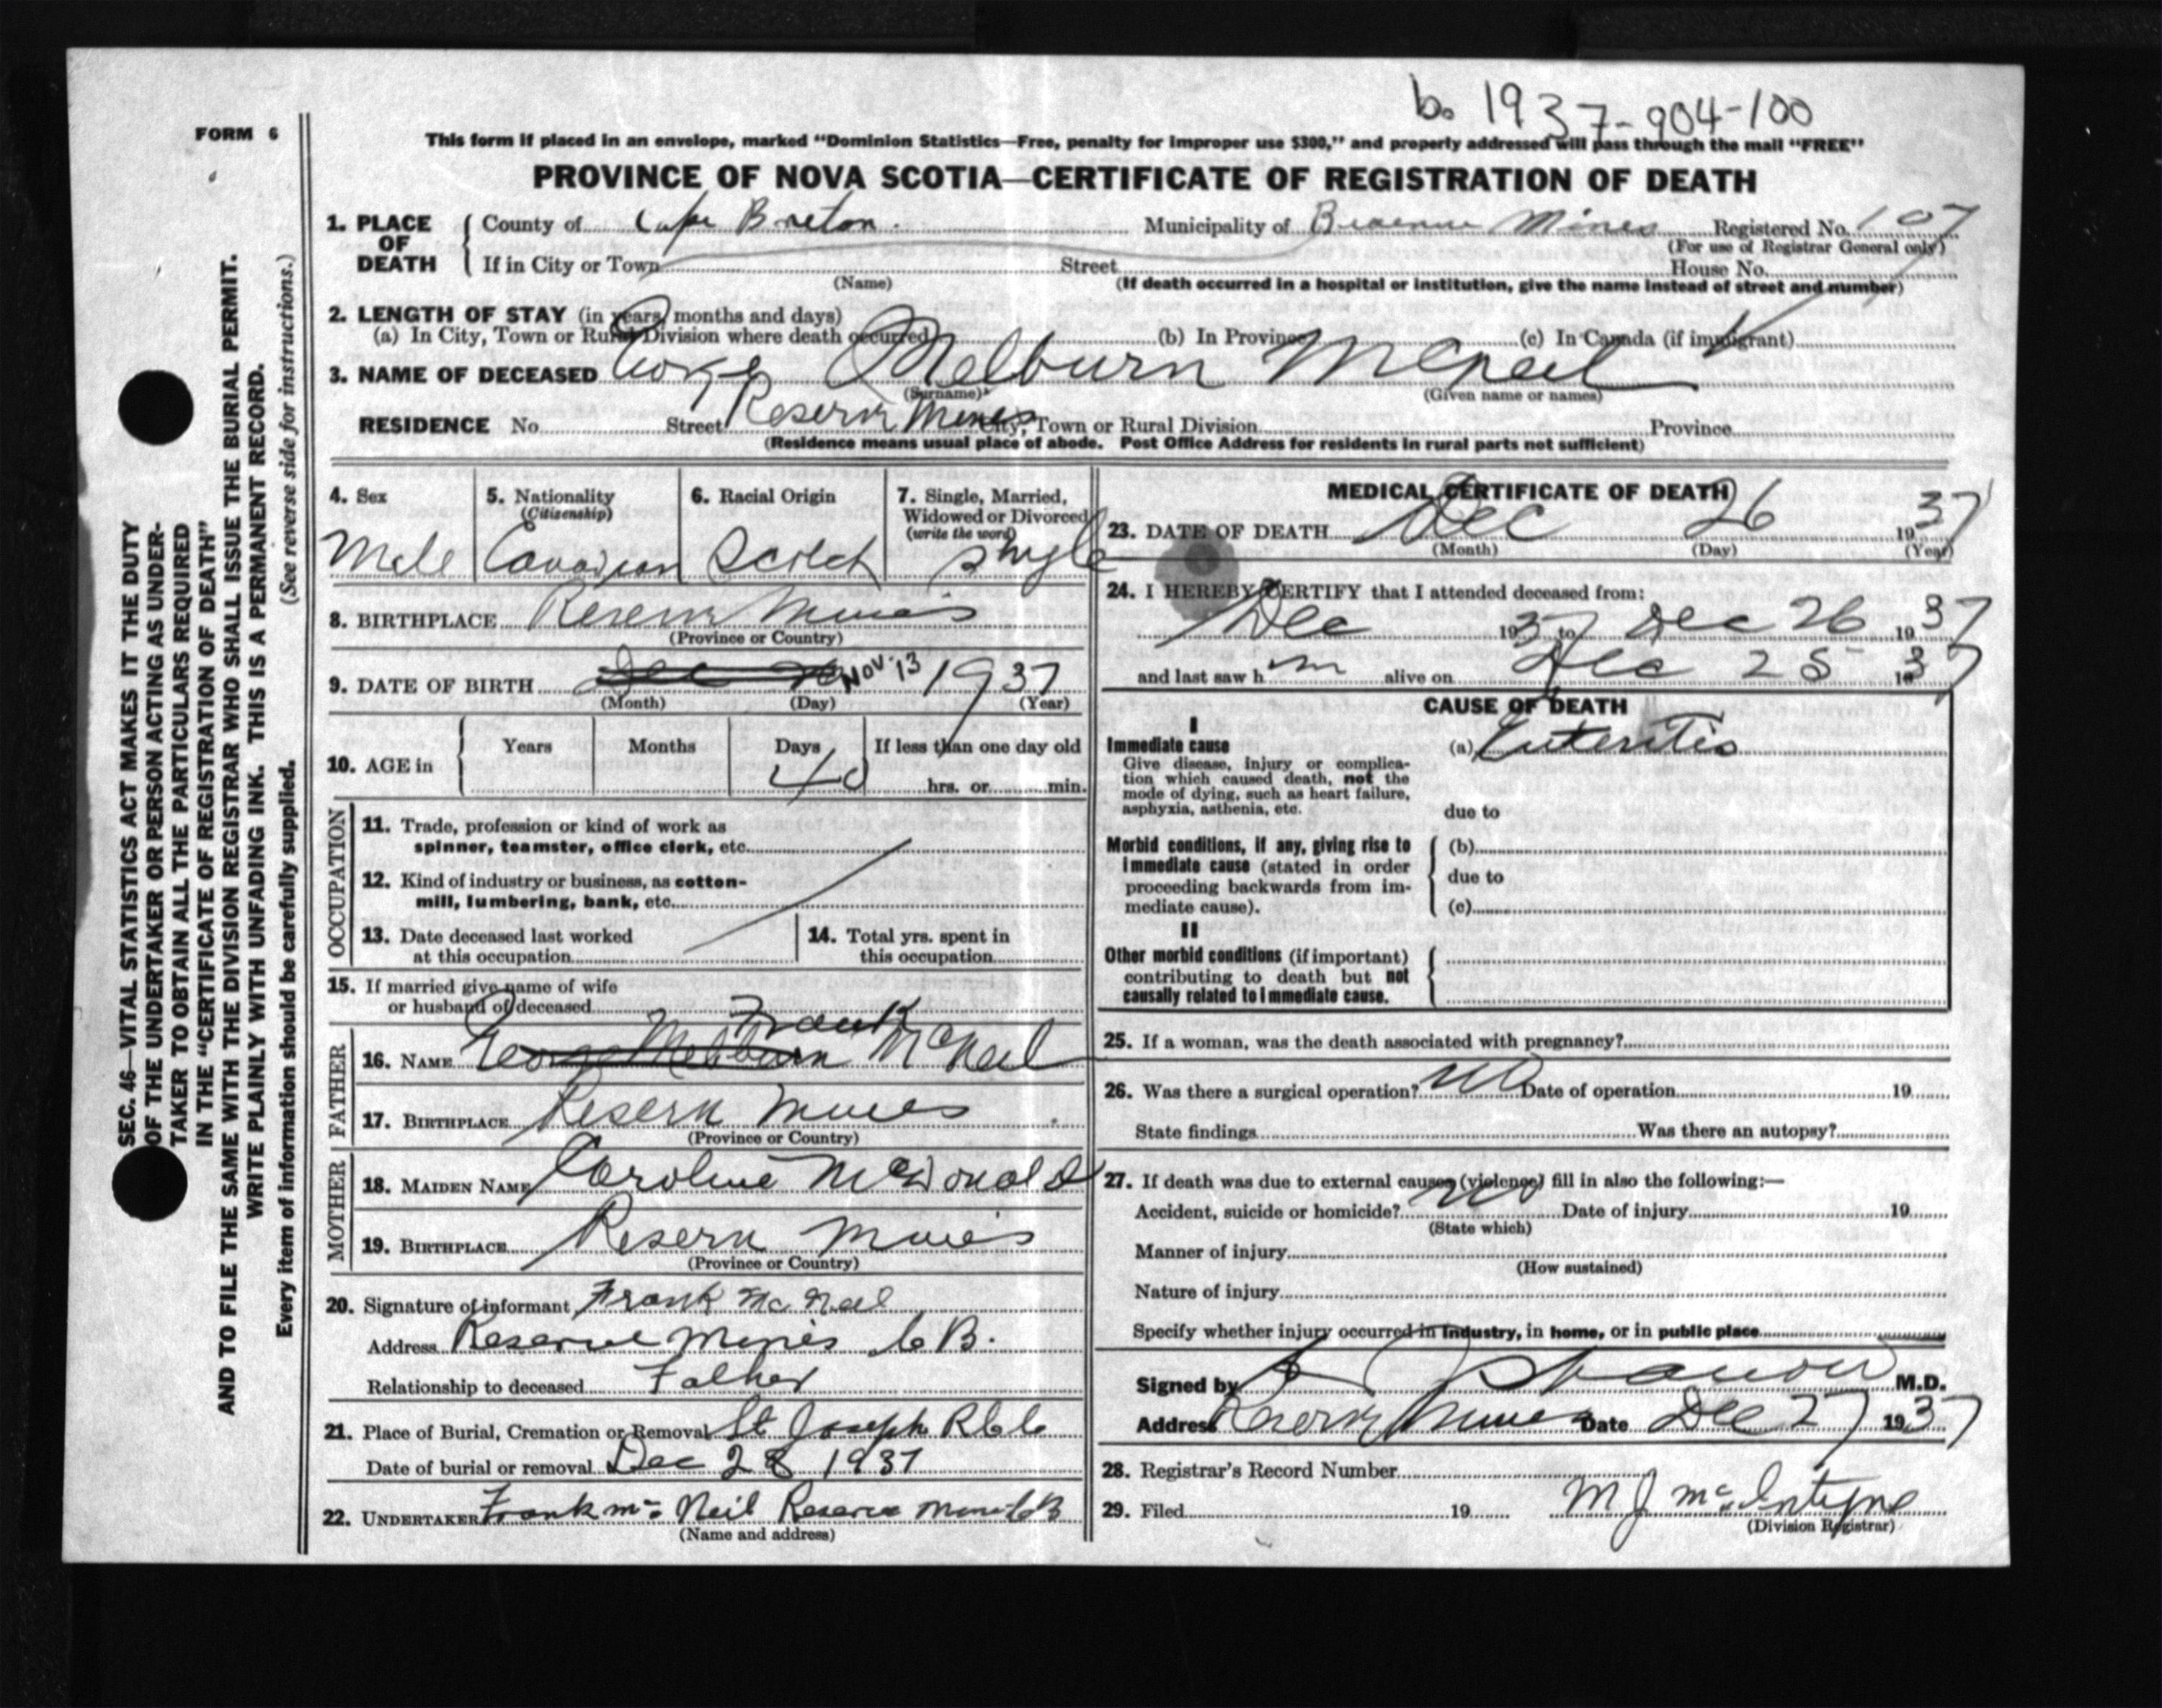 b. 1937-904-100
FORM 6
This form if placed in an envelope, marked "Dominion Statistics—Free, penalty for improper use $300," and properly addressed will pass through the mail "FREE"
PROVINCE OF NOVA SCOTIA—CERTIFICATE OF REGISTRATION OF DEATH
1. PLACE OF DEATH { County of Cape Breton. Municipality of Mines Registered No. 107
(For use of Registrar General only)
If in City or Town Street House No.
(Name) (If death occurred in a hospital or institution, give the name instead of street and number)
2. LENGTH OF STAY (in years, months and days)
(a) In City, Town or Rural Division where death occurred (b) In Province (c) In Canada (if immigrant)
3. NAME OF DECEASED George Melburn McNeil
(Surname) (Given name or names)
RESIDENCE No. Street Reserve Mines City, Town or Rural Division Province
(Residence means usual place of abode. Post Office Address for residents in rural parts not sufficient)
4. Sex 5. Nationality (Citizenship) 6. Racial Origin 7. Single, Married, Widowed or Divorced (write the word)
Male Canadian Scotch Single
8. BIRTHPLACE Reserve Mines
(Province or Country)
9. DATE OF BIRTH Dec Nov. 13 1937
(Month) (Day) (Year)
10. AGE in { Years Months Days If less than one day old
40 hrs. or min.
OCCUPATION
11. Trade, profession or kind of work as
spinner, teamster, office clerk, etc.
12. Kind of industry or business, as cotton-
mill, lumbering, bank, etc.
13. Date deceased last worked
at this occupation
14. Total yrs. spent in
this occupation
15. If married give name of wife
or husband of deceased
Frank
FATHER
16. NAME George Melburn McNeil
17. BIRTHPLACE Reserve Mines
(Province or Country)
MOTHER
18. MAIDEN NAME Caroline McDonald
19. BIRTHPLACE Reserve Mines
(Province or Country)
20. Signature of informant Frank McNeil
Address Reserve Mines C B.
Relationship to deceased Father
21. Place of Burial, Cremation or Removal St Joseph R C C
Date of burial or removal Dec 28 1937
22. UNDERTAKER Frank Mc Neil Reserve Mines CB
(Name and address)
MEDICAL CERTIFICATE OF DEATH
23. DATE OF DEATH Dec 26 1937
(Month) (Day) (Year)
24. I HEREBY CERTIFY that I attended deceased from:
Dec 1937 to Dec 26 1937
and last saw h im alive on Dec 25 1937
CAUSE OF DEATH
I
Immediate cause (a) Enteritis
Give disease, injury or complica-
tion which caused death, not the
mode of dying, such as heart failure,
asphyxia, asthenia, etc.
due to
Morbid conditions, if any, giving rise to (b)
immediate cause (stated in order
proceeding backwards from im- due to
mediate cause). (c)
II
Other morbid conditions (if important)
contributing to death but not
causally related to immediate cause.
25. If a woman, was the death associated with pregnancy?
26. Was there a surgical operation? no Date of operation 19
State findings Was there an autopsy?
27. If death was due to external causes (violence) fill in also the following:—
Accident, suicide or homicide? no Date of injury 19
(State which)
Manner of injury
(How sustained)
Nature of injury
Specify whether injury occurred in industry, in home, or in public place
Signed by M.D.
Address Reserve Mines Date Dec 27 1937
28. Registrar's Record Number
29. Filed 19 M J McIntyre
(Division Registrar)
SEC. 46—VITAL STATISTICS ACT MAKES IT THE DUTY
OF THE UNDERTAKER OR PERSON ACTING AS UNDER-
TAKER TO OBTAIN ALL THE PARTICULARS REQUIRED
IN THE "CERTIFICATE OF REGISTRATION OF DEATH"
AND TO FILE THE SAME WITH THE DIVISION REGISTRAR WHO SHALL ISSUE THE BURIAL PERMIT.
WRITE PLAINLY WITH UNFADING INK. THIS IS A PERMANENT RECORD.
Every item of information should be carefully supplied. (See reverse side for instructions.)